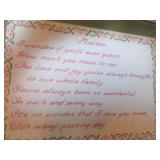 Mother
I wonder if you'll ever guess,
How much you mean to me
The love and joy you've always brought,
to our whole family.
You've always been so wonderful,
In each and every way.
It's no wonder that I love you more,
With every passing day.